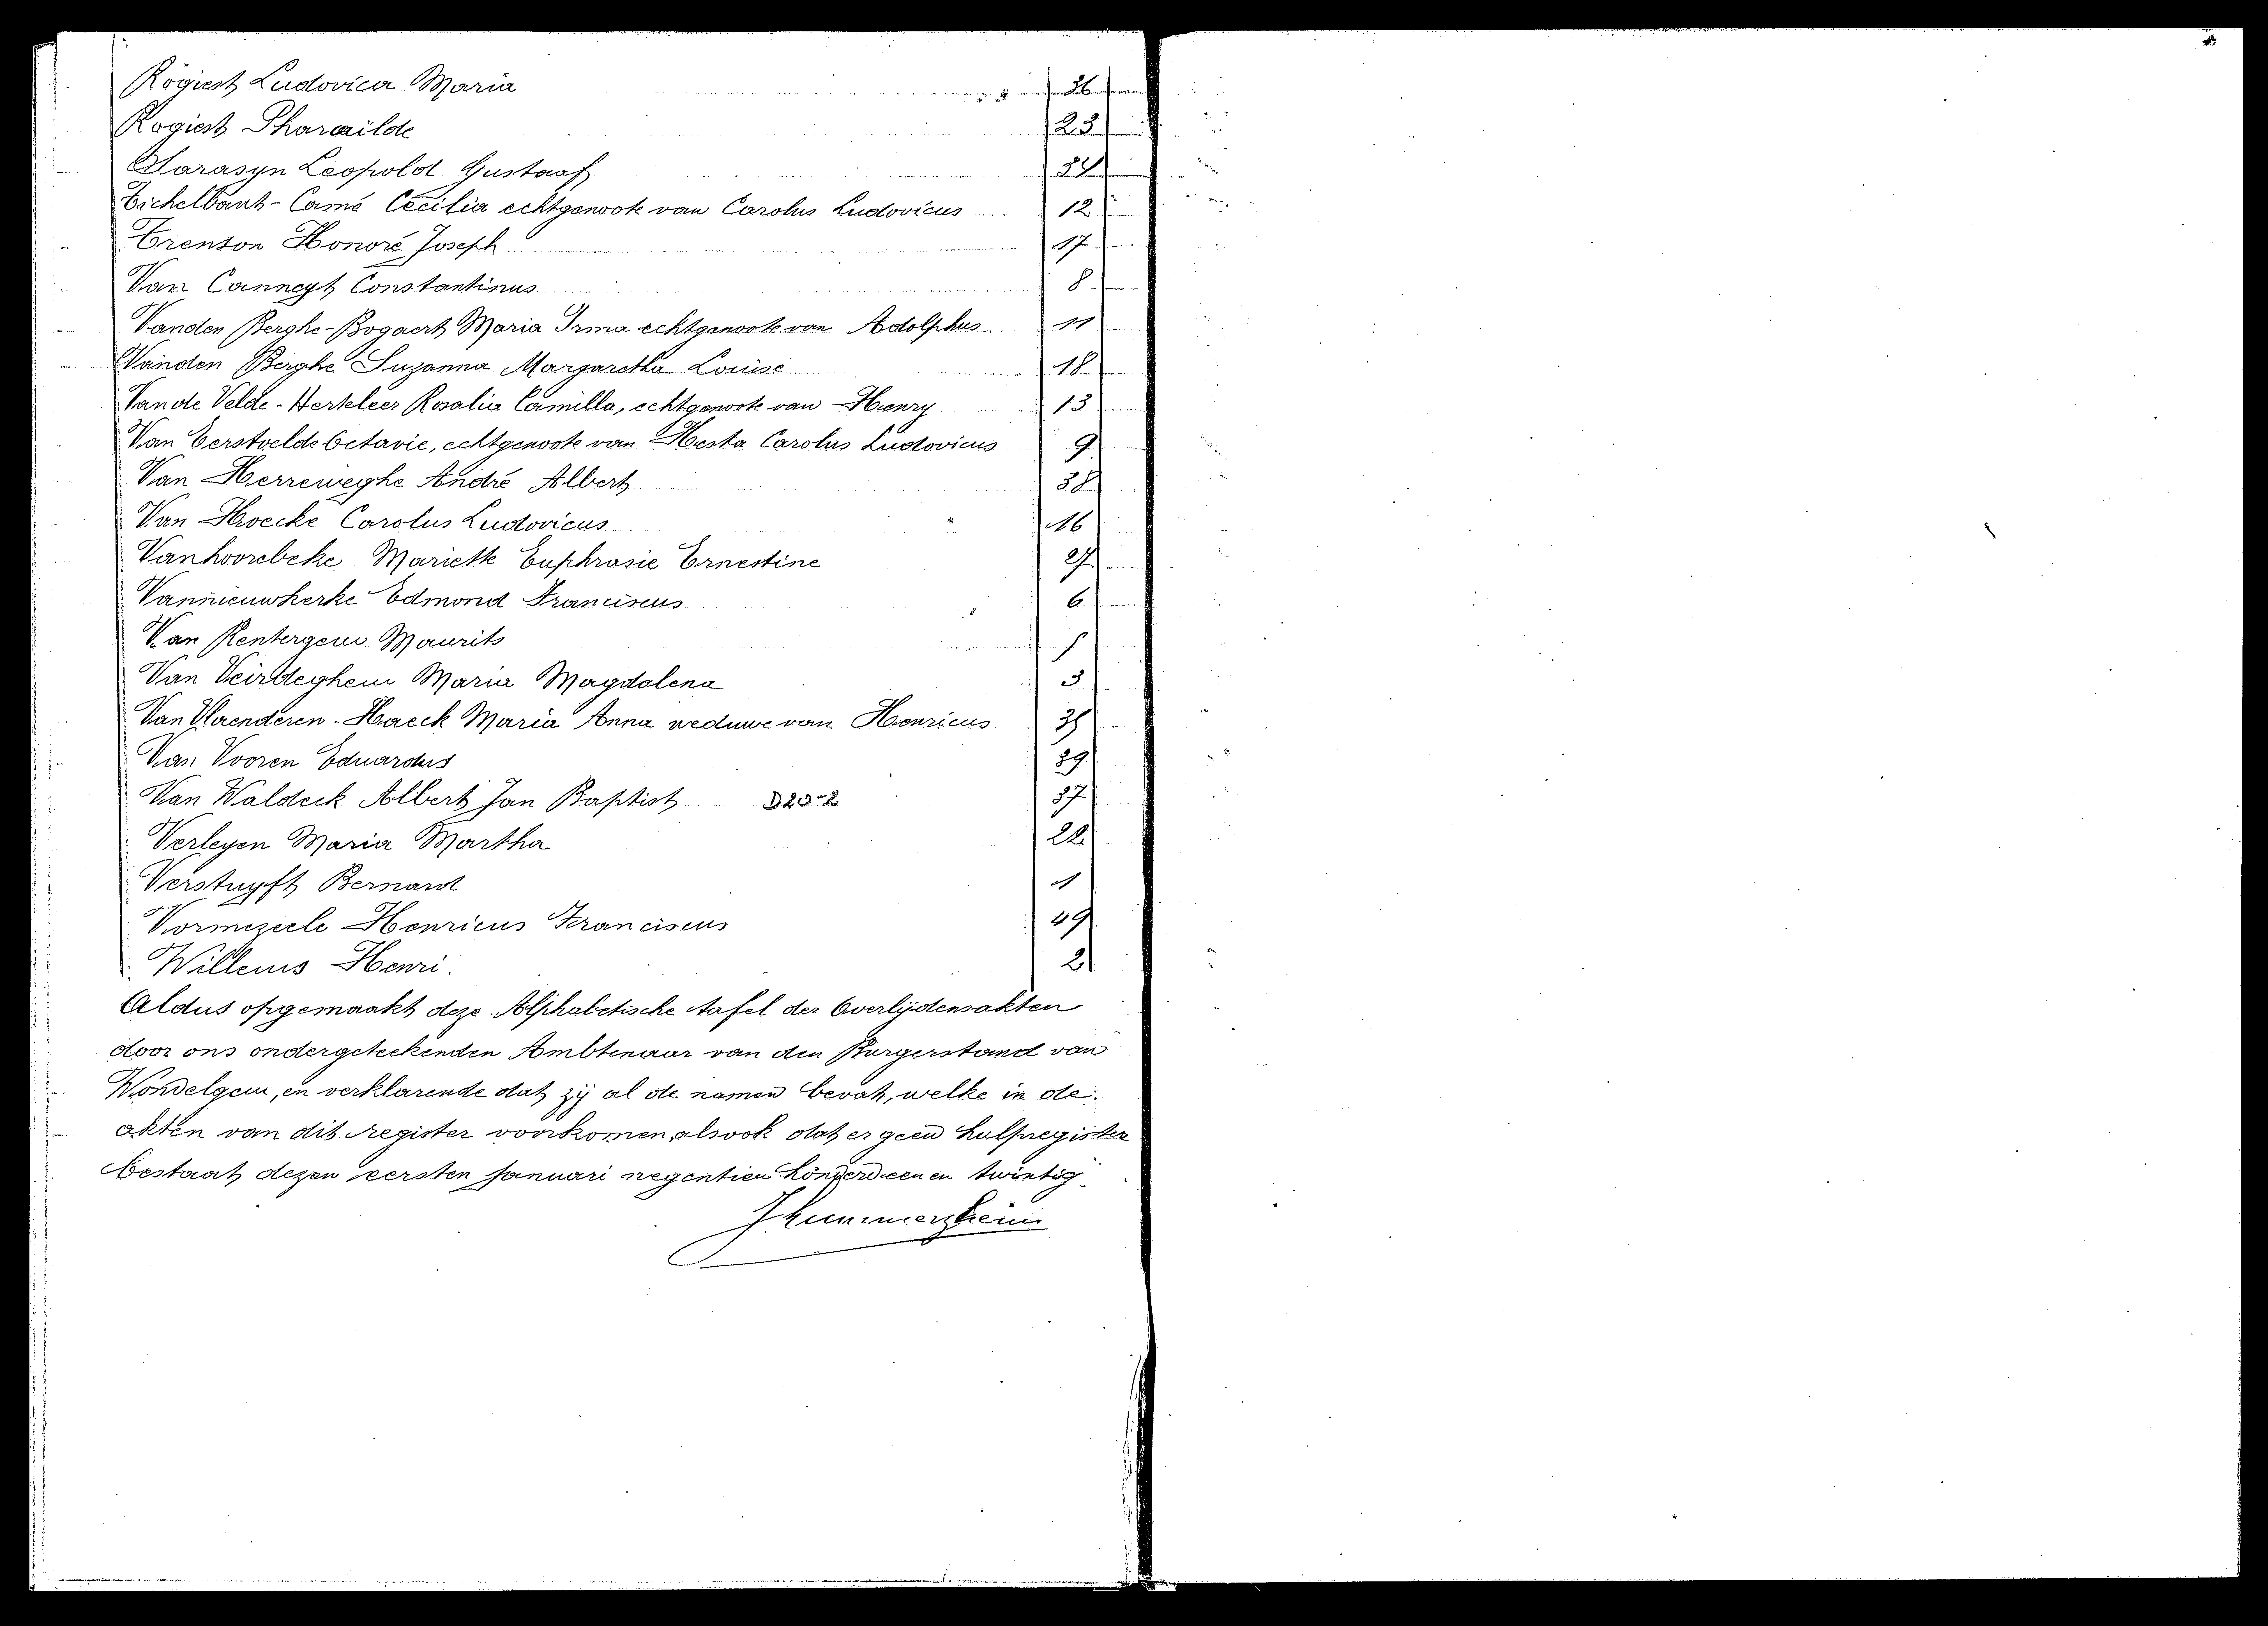 Rogiest Ludovica Maria 26
Rogiest Pharaïlde 23
Sarasyn Leopold Gustaaf 34
Eichelbaut-Camé Cecilia echtgenoote van Carolus Ludovicus 12
Trenson Honoré Joseph 17
Van Canneyt Constantinus 8
Vanden Berghe-Bogaert Maria Irma echtgenoote van Adolphus 11
Vanden Berghe Suzanna Margaretha Louise 18
Van de Velde-Herteleer Rosalia Camilla, echtgenoote van Henry 13
Van Eerstvelde Octavie, echtgenoote van Hesta Carolus Ludovicus 9
Van Herreweghe André Albert 38
Van Hoecke Carolus Ludovicus 16
Vanhoorebeke Mariette Euphrasie Ernestine 27
Vannieuwkerke Edmond Franciscus 6
Van Rentergem Maurits
Van Veirdeghem Maria Magdalena 3
Van Vlaenderen-Haeck Maria Anna weduwe van Henricus 35
Van Vooren Eduardus 39
Van Waldeck Albert Jan Baptist D20-2 37
Verleyen Maria Martha 22
Verstuyft Bernard 1
Vormezeele Henricus Franciscus 49
Willems Henri. 2
Aldus opgemaakt deze Alphabetische tafel der Overlijdensakten
door ons ondergeteekenden Ambtenaar van den Burgerstand van
Wondelgem, en verklarende dat zij al de namen bevat, welke in de
akten van dit register voorkomen, alsook dat er geen hulpregister
bestaat, dezen eersten Januari negentien honderd een en twintig